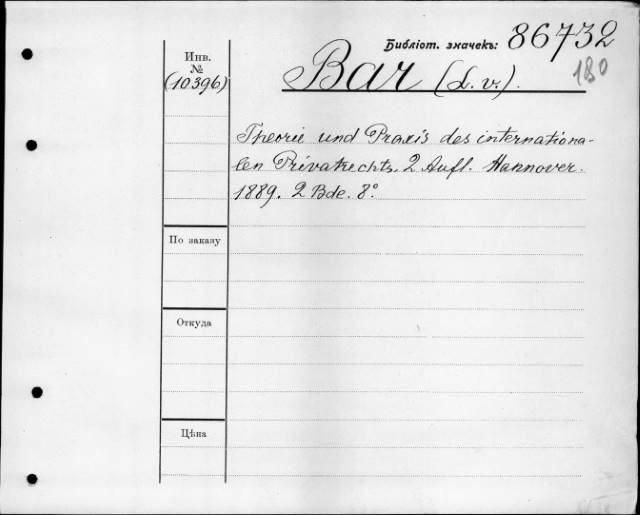 Библіот. значекъ: 86732
180
Инв.
№
(10396)
Bar (L. v.).
Theorie und Praxis des internationa-
len Privatrechts. 2 Aufl. Hannover.
1889. 2 Bde. 8°.
По заказу
Откуда
Цѣна